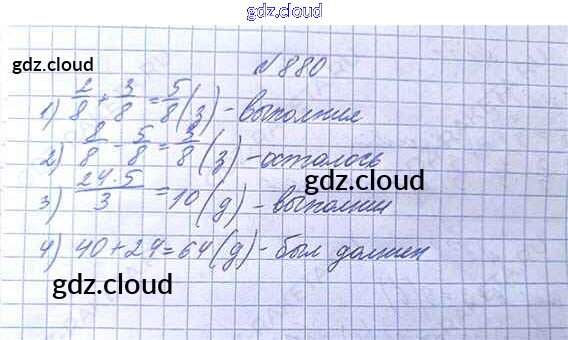 gdz.cloud
gdz.cloud
№880
1) 2/8 + 3/8 = 5/8 (з) - выполнил
2) 8/8 - 5/8 = 3/8 (з) - осталось
gdz.cloud
3) 24·5/3 = 10 (д) - выполнил
4) 40+24=64 (д) - был должен
gdz.cloud